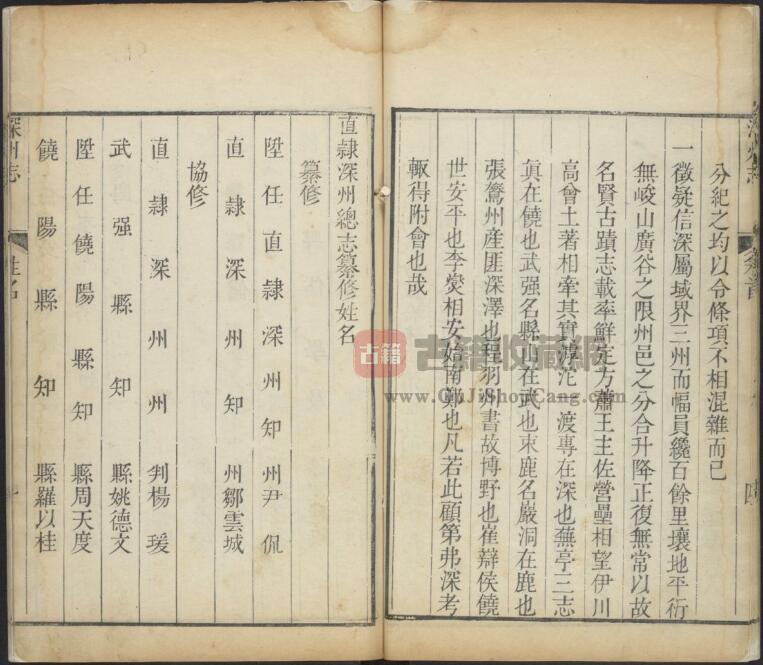 分紀之均以令條項不相混雜而已
一徵疑信深屬域界三州而幅員纔百餘里壤地平衍
無峻山廣谷之限州邑之分合升降正復無常以故
名賢古蹟志載率鮮定方蕭王主佐營壘相望伊川
高曾土著相牽其實滹沱一渡專在深也蕪亭三志
眞在饒也武强名縣山在武也束鹿名巖洞在鹿也
張鷟州產匪深澤也程羽州書故博野也崔辯侯饒
世安平也李燮相安始南鄭也凡若此顧第弗深考
輙得附會也哉
直隷深州總志纂修姓名
纂修
陞任直隷深州知州尹侃
直隷深州知州鄒雲城
協修
直隷深州州判楊瑗
武强縣知縣姚德文
陞任饒陽縣知縣周天度
饒陽縣知縣羅以桂
深州志
姓名
古籍
古籍收藏網
www.GuJiShouCang.com